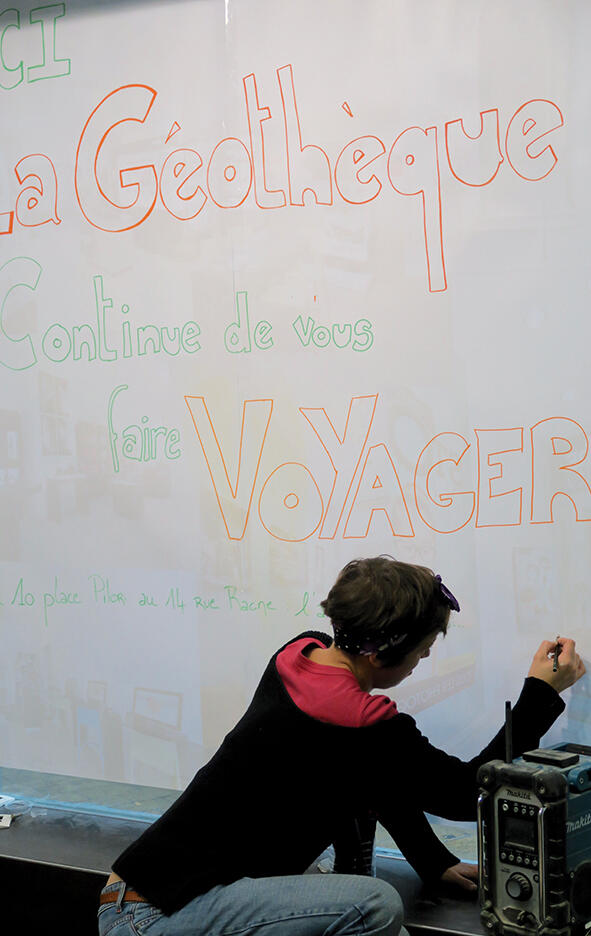 CI
La Géothèque
Continue de vous
faire VOYAGER
10 place Pilori au 14 rue Racine l'a
makita
makita